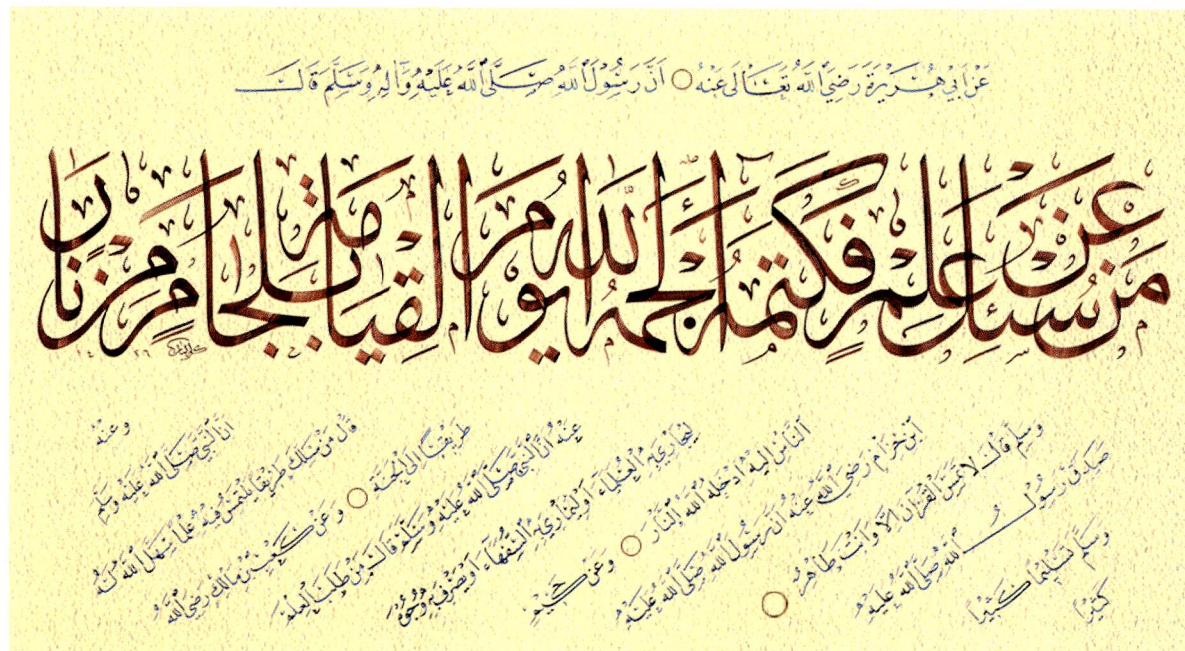 عَنْ اَبِي هُرَيْرَةَ رَضِيَ اللَّهُ تَعَالَى عَنْهُ ○ اَنَّ رَسُولَ اللَّهِ صَلَّى اللَّهُ عَلَيْهِ وَآلِهِ وَسَلَّمَ قَالَ
مَنْ سُئِلَ عَنْ عِلْمٍ فَكَتَمَهُ أَلْجَمَهُ اللَّهُ يَوْمَ الْقِيَامَةِ بِلِجَامٍ مِنْ نَارٍ
وعنه
ان النبي صلى الله عليه وسلم
قال من سلك طريقا يلتمس فيه علما سهل الله له
طريقا الى الجنة ○ وعن كعب بن مالك رضي الله
عنه ان النبي صلى الله عليه وسلم قال من طلب العلم
ليجاري به العلماء او ليماري به السفهاء او يصرف به وجوه
الناس اليه ادخله الله النار ○ وعن حكيم
ابن حزام رضي الله عنه ان رسول الله صلى الله عليه
وسلم قال لا تمس القران الا وانت طاهر ○
صدق رسول الله صلى الله عليه
وسلم تسليما كثيرا
كثيرا